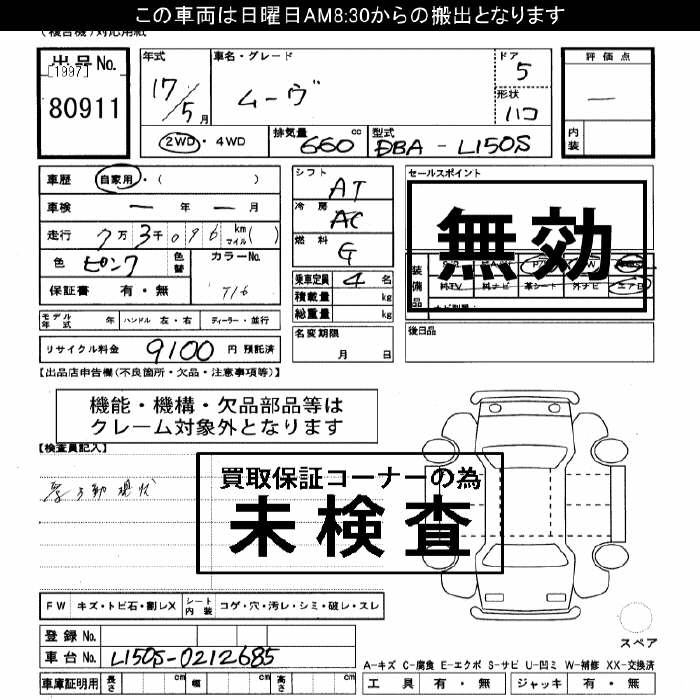 この車両は日曜日AM8:30からの搬出となります
(複合機)対応用紙
出品No.
[1997]
80911
年式
17/5月
車名・グレード
ムーヴ
ドア
5
形状
ハコ
評価点
—
内装
2WD・4WD
排気量
660 cc
型式
DBA - L150S
車歴 自家用・( )
車検 — 年 — 月
走行 7万3千096 km マイル( )
色 ピンク 色替
カラーNo.
T16
保証書 有・無
シフト
AT
冷房
AC
燃料
G
乗車定員 4 名
積載量 kg
総重量 kg
名変期限
月 日
セールスポイント
無効
装備品
純TV 純ナビ 革シート 外ナビ エアB
後日品
モデル年式 年 ハンドル 左・右 ディーラー・並行
リサイクル料金 9100 円 預託済
【出品店申告欄(不良箇所・欠品・注意事項等)】
機能・機構・欠品部品等は
クレーム対象外となります
【検査員記入】
買取保証コーナーの為
未検査
FW キズ・トビ石・割レX シート内装 コゲ・穴・汚レ・シミ・破レ・スレ
登録No.
車台No. L150S-0212685
車庫証明用 長さ cm 幅 cm 高さ cm
スペア
A-キズ C-腐食 E-エクボ S-サビ U-凹ミ W-補修 XX-交換済
工具 有・無 ジャッキ 有・無